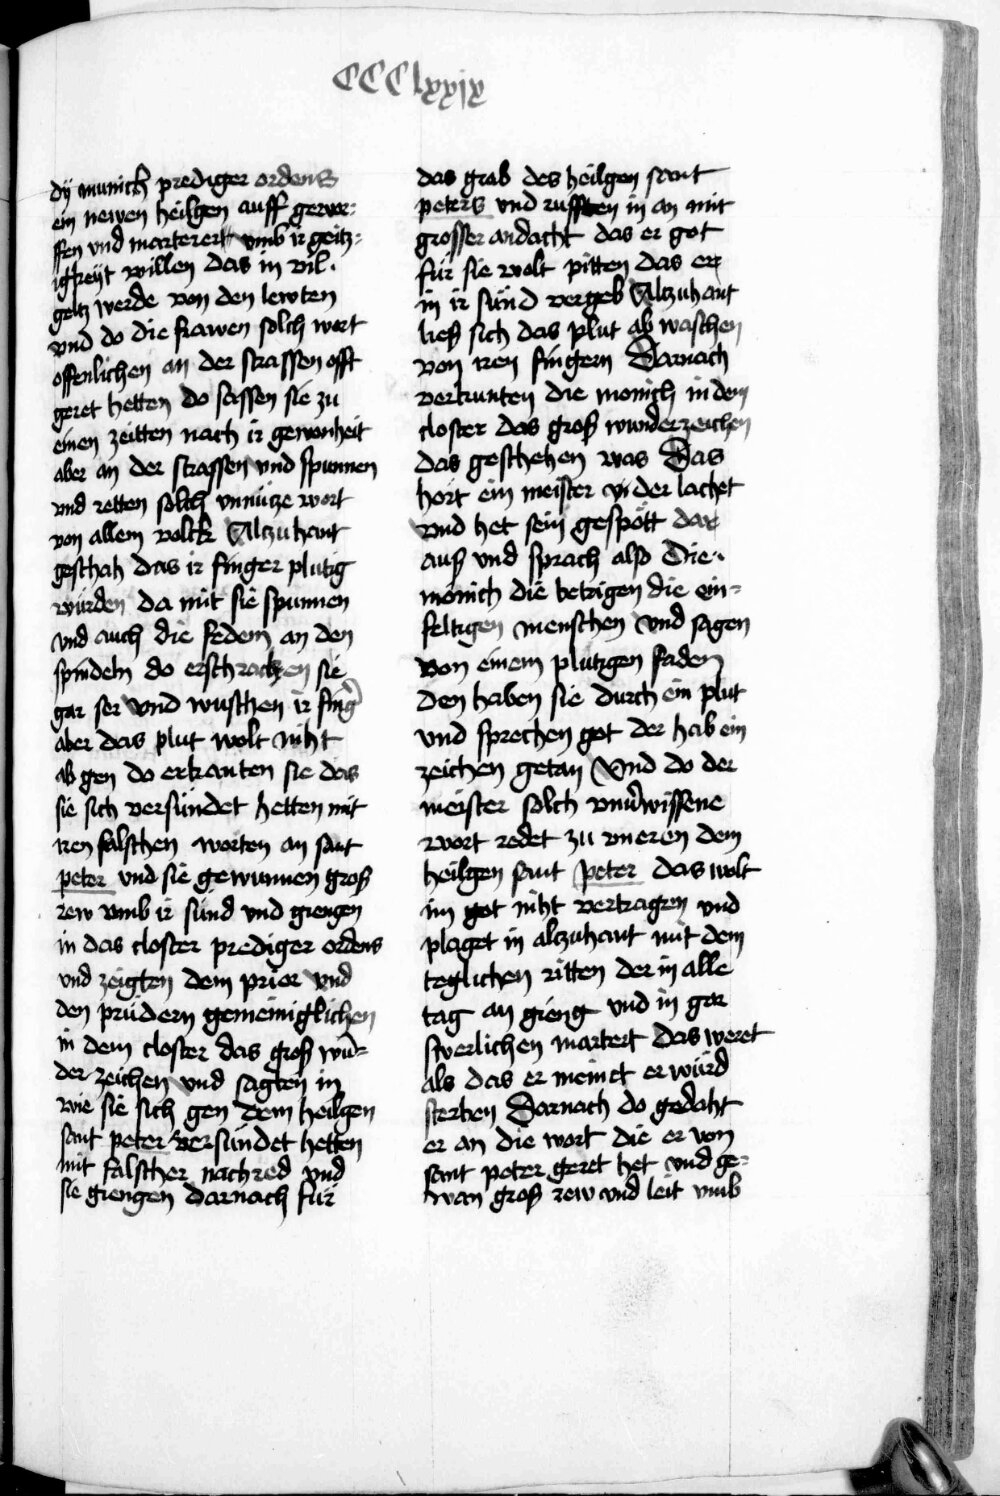 CCClxxix
dÿ munich prediger ordens
ein newen heilgen auff gewor-
ffen vnd marterert vmb ir geitz-
igkeyt willen das in vil
geltz werde von den lewten
vnd do die frawen solch wort
offenlichen an der strassen offt
geret hetten do sassen sie zu
einen zeitten nach ir gewonheit
aber an der strassen vnd spunnen
vnd retten solch vnnütze wort
von allem volck Alzuhant
geschah das ir finger plutig
würden da mit sie spunnen
vnd auch die fedem an den
spindeln do erschracken sie
gar ser vnd wuschen ir fing̃
aber das plut wolt niht
ab gen do erkanten sie das
sie sich versündet hetten mit
iren falschen worten an sant
peter vnd sie gewunnen groß
rew vmb ir sünd vnd giengen
in das closter prediger ordens
vnd zeigten dem prior vnd
den prüdern gemeiniglichen
in dem closter das groß wū-
der zeichen vnd sagten in
wie sie sich gen dem heilgen
sant peter versündet hetten
mit falscher nachred vnd
sie giengen darnach für
das grab des heilgen sant
peters vnd rufften in an mit
grosser andacht das er got
für sie wolt pitten das er
in ir sünd vergeb Alzuhant
ließ sich das plut ab waschen
von iren fingern Darnach
verkunten die monich in dem
closter das groß wunderzeichen
das geschehen was Das
hort ein meister vn̄ der lachet
vnd het sein gespött dar
auß vnd sprach also Die
mönich die betrigen die ein-
feltigen menschen vnd sagen
von einem plutigen faden
den haben sie durch ein plut
vnd sprechen got der hab ein
zeichen getan Vnd do der
meister solch vnv̄wissene
wort redet zu vneren dem
heilgen sant peter das wolt
im got niht vertragen vnd
plaget in alczuhant mit dem
teglichen ritten der in alle
tag an gieng vnd in gar
swerlichen martert das weret
als das er meinet er würd
sterben Darnach do gedaht
er an die wort die er von
sant peter geret het vnd ge-
wan groß rew vnd leit vmb